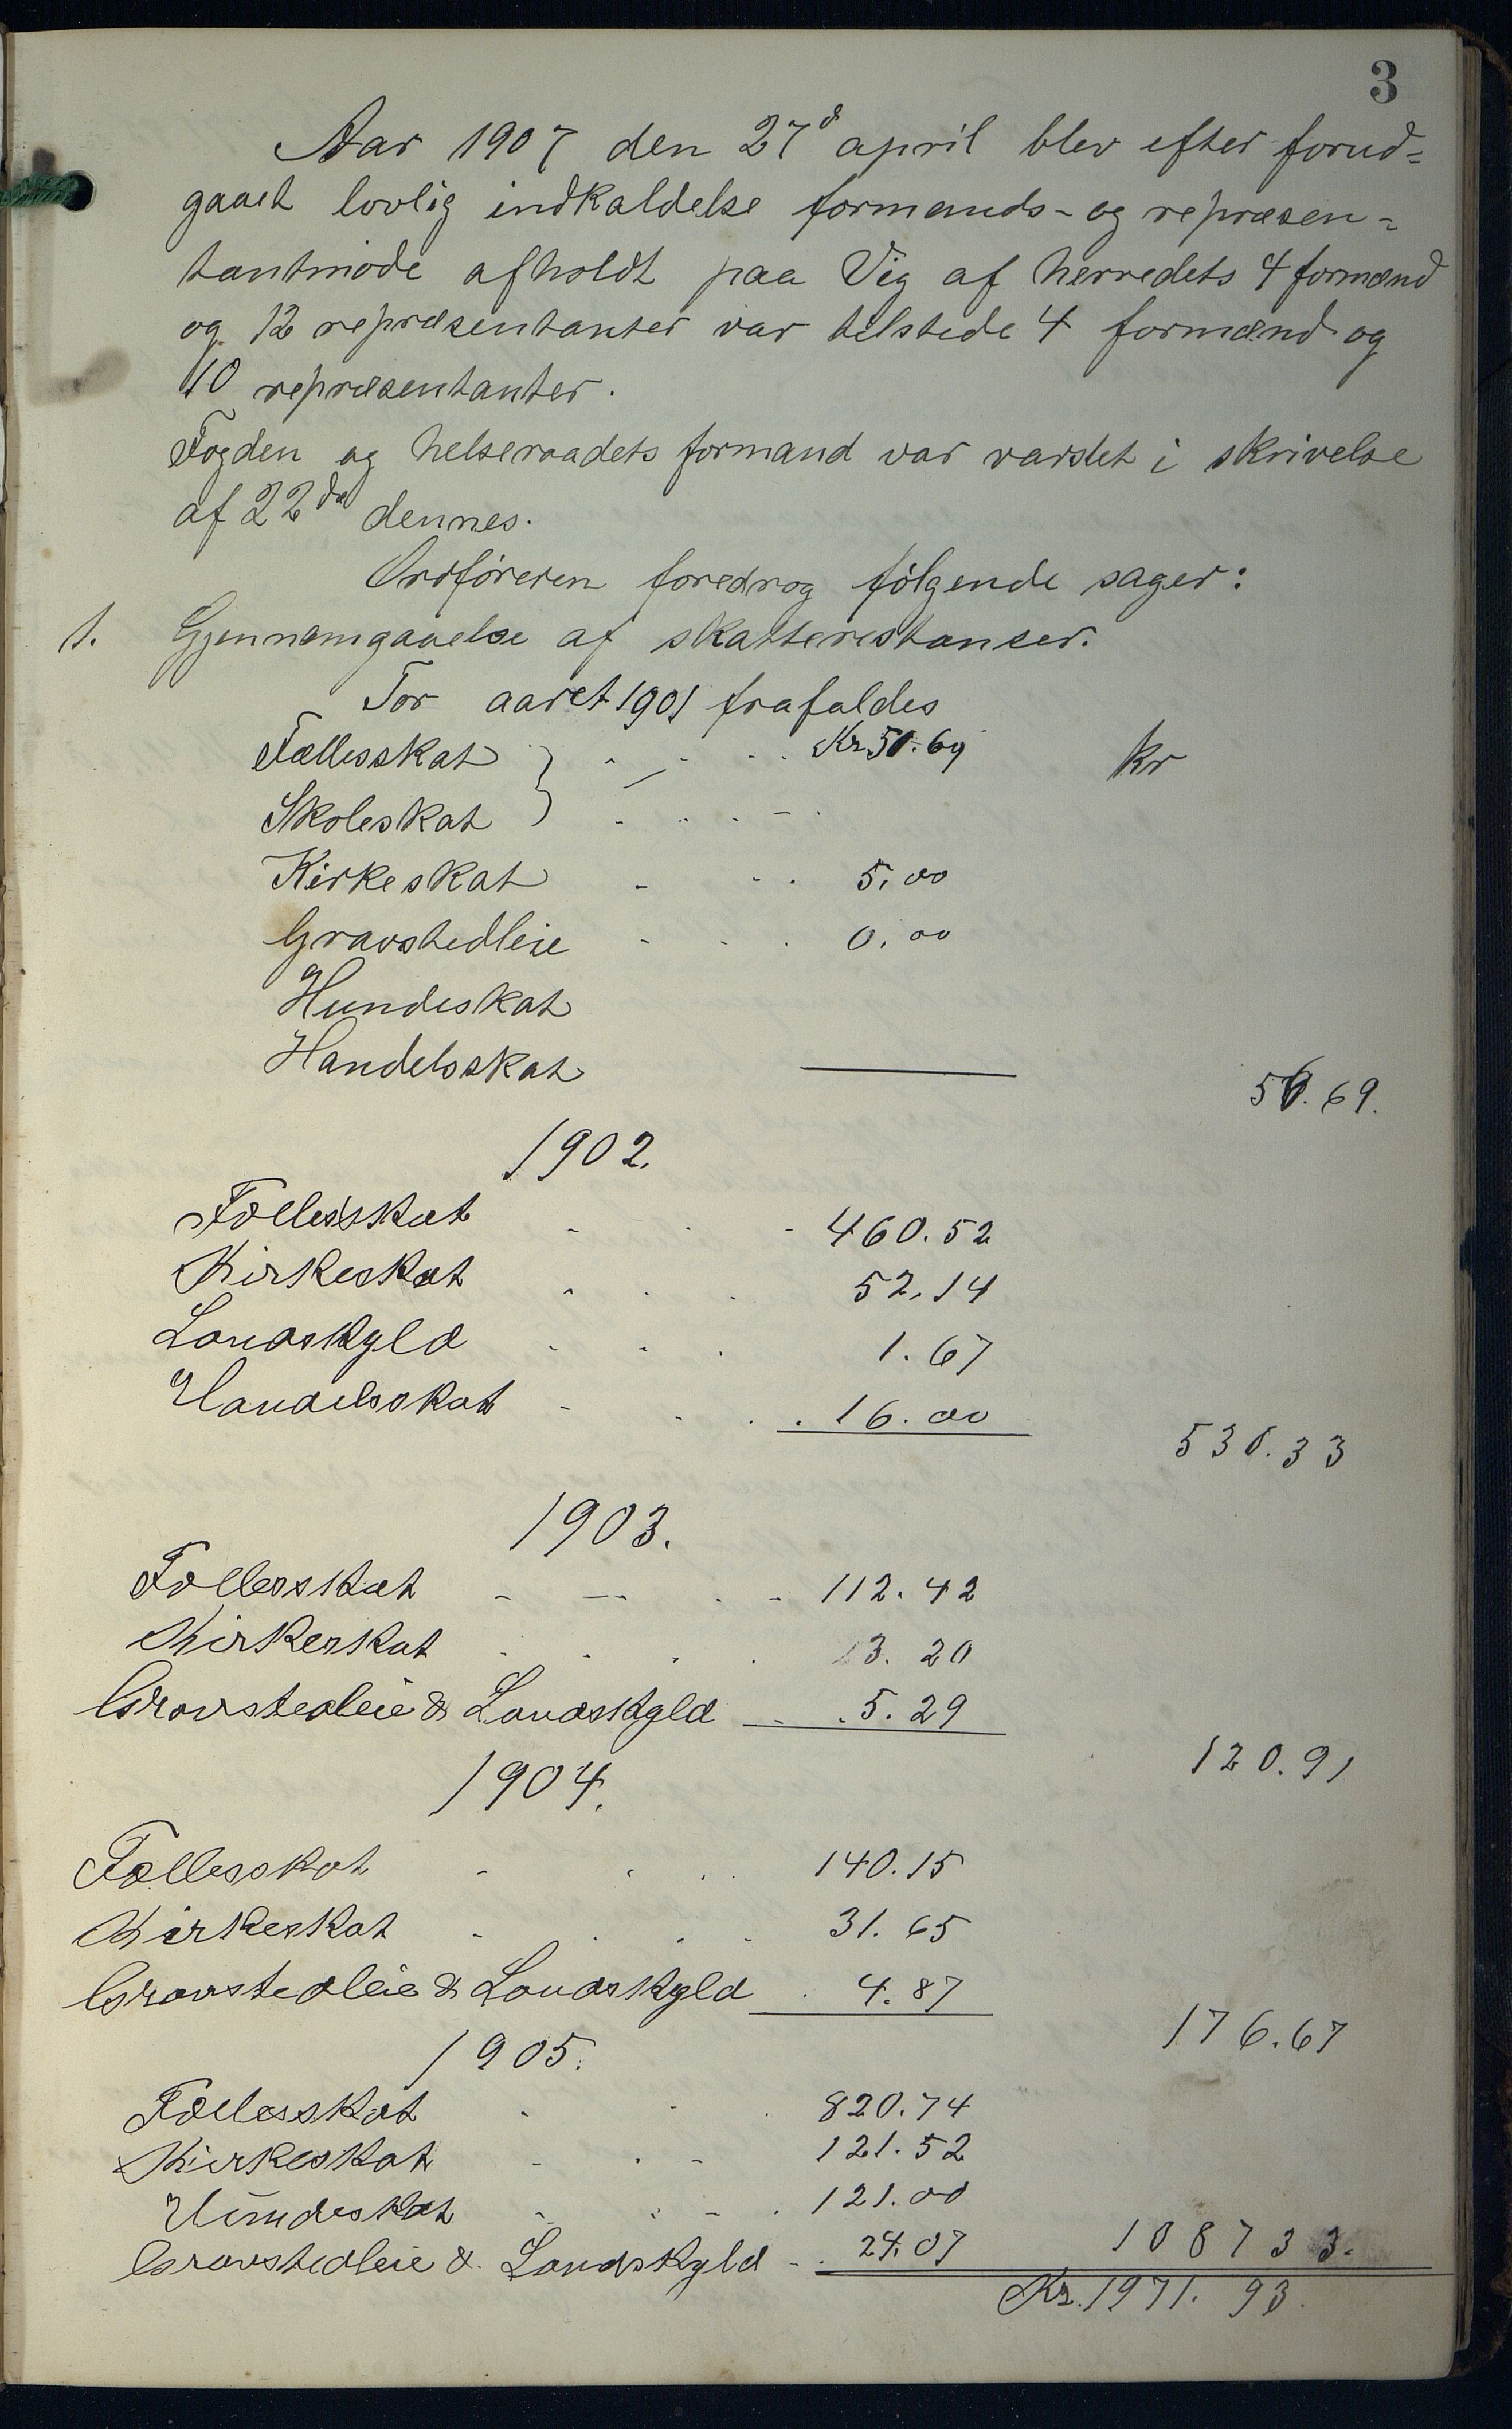 3
Aar 1907 den 27d april blev efter forud=
gaaet lovlig indkaldelse formands- og repræsen=
tantmøde afholdt paa Vig af herredets 4 formænd
og 12 repræsentanter var tilstede 4 formænd og
10 repræsentanter.
Fogden og helseraadets formand var varslet i skrivelse
af 22de dennes.
Ordføreren foredrog følgende sager:
1. Gjennemgaaelse af skatterestanser.
For aaret 1901 frafaldes
Fællesskat } Kr. 51.69 kr
Skoleskat
Kirkeskat 5.00
Gravstedleie 0.00
Hundeskat
Handelsskat
56.69.
1902.
Fællesskat 460.52
Kirkeskat 52.14
Landskyld 1.67
Handelsskat 16.00
530.33
1903.
Fællesskat 112.42
Kirkeskat 3.20
Gravstedleie & Landskyld 5.29
120.91
1904.
Fællesskat 140.15
Kirkeskat 31.65
Gravstedleie & Landskyld 4.87
176.67
1905.
Fællesskat 820.74
Kirkeskat 121.52
Hundeskat 121.00
Gravstedleie & Landskyld 24.07 1087 33.
Kr. 1971.93.